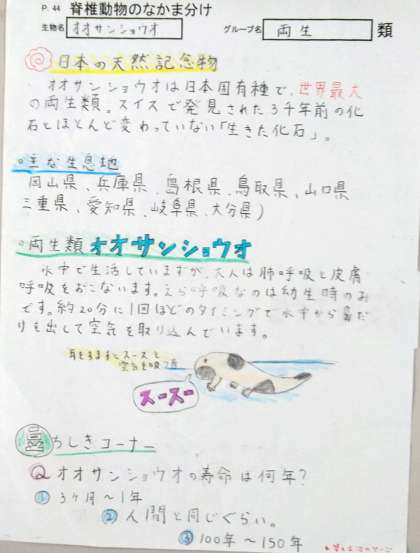 P. 44 脊椎動物のなかま分け
生物名 オオサンショウオ グループ名 両生 類
日本の天然記念物
オオサンショウオは日本固有種で、世界最大
の両生類。スイスで発見された3千年前の化
石とほとんど変わっていない「生きた化石」。
主な生息地
岡山県、兵庫県、島根県、鳥取県、山口県
三重県、愛知県、岐阜県、大分県)
両生類オオサンショウオ
水中で生活していますが、大人は肺呼吸と皮膚
呼吸をおこないます。えら呼吸なのは幼生時のみ
です。約20分に1回ほどのタイミングで水から鼻だ
けを出して空気を取り込んでいます。
耳をすますとスースと
空気を吸う音
スースー
ちしきコーナー
Q オオサンショウオの寿命は何年?
① 3ヶ月〜1年
② 人間と同じぐらい。
③ 100年〜150年